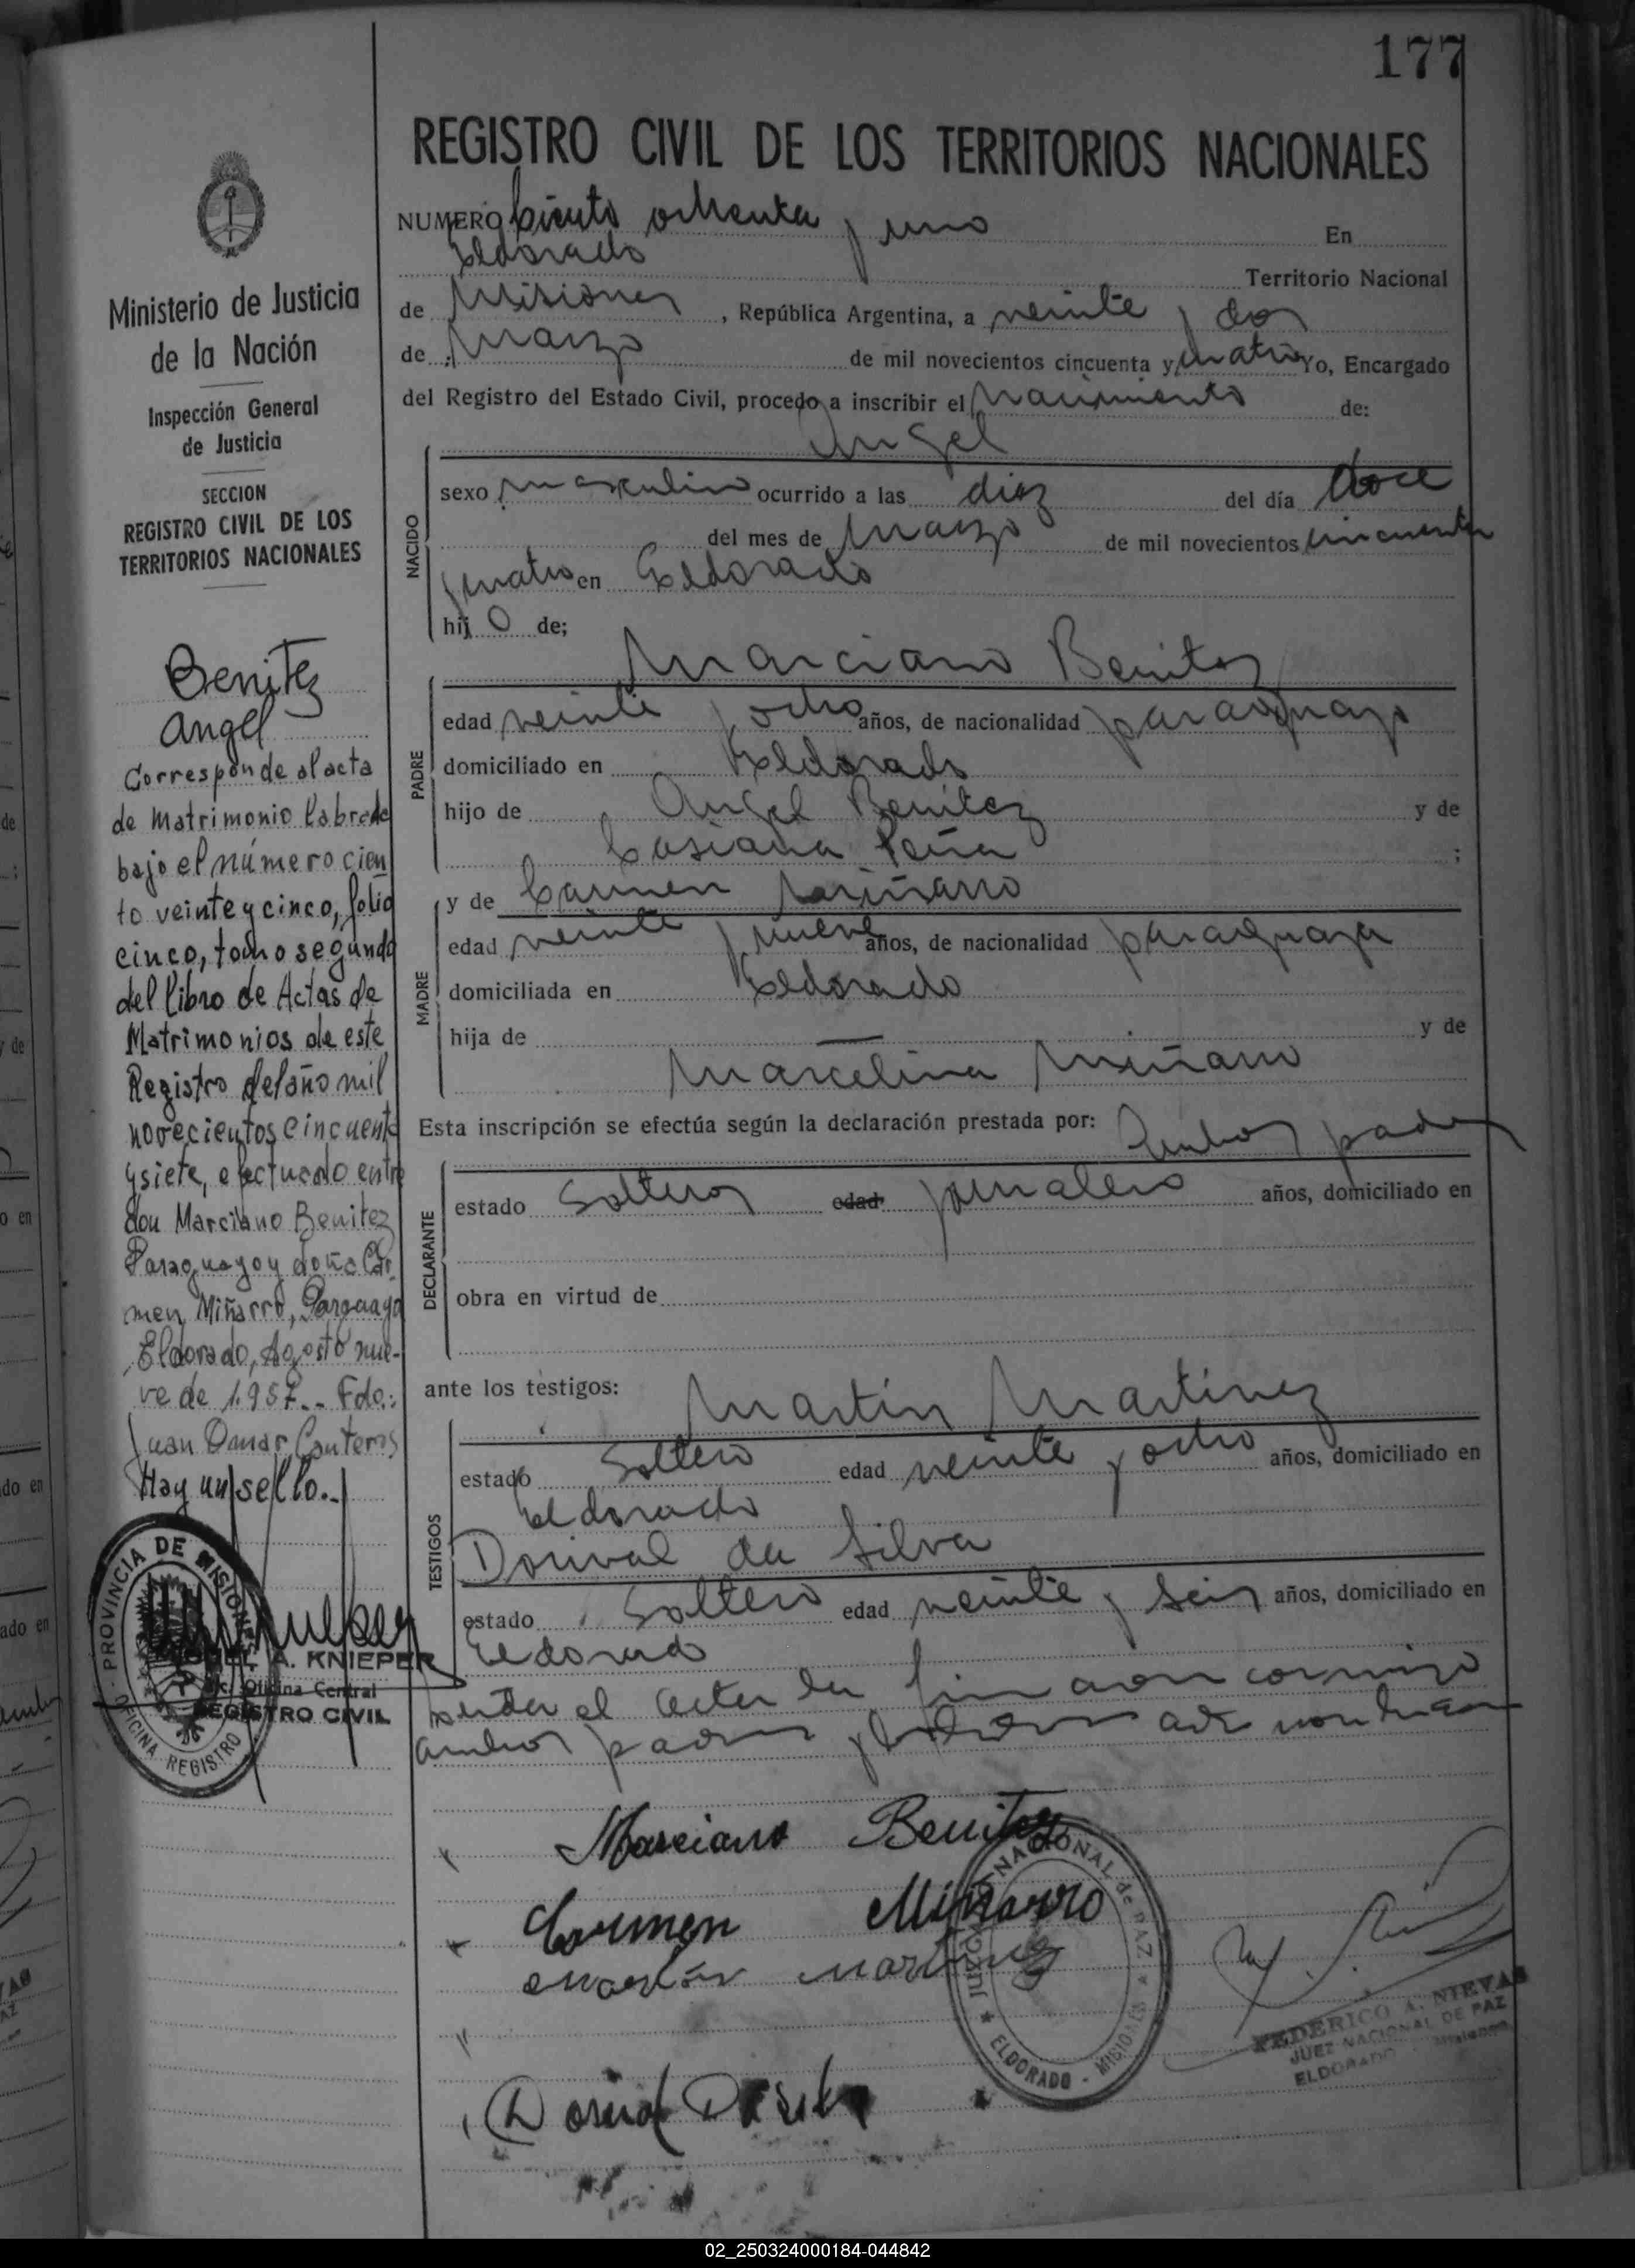 177
REGISTRO CIVIL DE LOS TERRITORIOS NACIONALES
NUMERO Ciento ochenta y uno En
Eldorado Territorio Nacional
de Misiones, República Argentina, a veinte y dos
de Marzo de mil novecientos cincuenta y cuatro Yo, Encargado
del Registro del Estado Civil, procedo a inscribir el Nacimiento de:
Angel
NACIDO
sexo masculino ocurrido a las diez del día doce
del mes de Marzo de mil novecientos cincuenta
y cuatro en Eldorado
hijo de;
Marciano Benitez
PADRE
edad veinte y ocho años, de nacionalidad paraguayo
domiciliado en Eldorado
hijo de Angel Benitez y de
Casiana Peña ;
y de Carmen Miñarro
MADRE
edad veinte y nueve años, de nacionalidad paraguaya
domiciliada en Eldorado
hija de — y de
Marcelina Miñarro
Esta inscripción se efectúa según la declaración prestada por: Ambos padres
DECLARANTE
estado Solteros edad jornalero años, domiciliado en
obra en virtud de
ante los testigos: Martín Martínez
TESTIGOS
estado Soltero edad veinte y ocho años, domiciliado en
Eldorado
Dorival da Silva
estado Soltero edad veinte y seis años, domiciliado en
Eldorado
el acta la firmaron conmigo
ambos padres
Marciano Benitez
Carmen Miñarro
Martín Martinez
Dorival Da Silva
JUZGADO NACIONAL de PAZ
ELDORADO - MISIONES
FEDERICO A. NIEVAS
JUEZ NACIONAL DE PAZ
ELDORADO - Misiones
Ministerio de Justicia
de la Nación
Inspección General
de Justicia
SECCION
REGISTRO CIVIL DE LOS
TERRITORIOS NACIONALES
Benitez
Angel
Corresponde al acta
de Matrimonio labrada
bajo el número cien
to veinte y cinco, folio
cinco, tomo segundo
del libro de Actas de
Matrimonios de este
Registro del año mil
novecientos cincuenta
y siete, efectuado entre
don Marciano Benitez
Paraguayo y doña Car
men Miñarro, Paraguaya
Eldorado, Agosto nue-
ve de 1.957.- Fdo.:
Juan Omar Canteros
Hay un sello.-
PROVINCIA DE MISIONES
OFICINA REGISTRO
A. KNIEPER
Oficina Central
REGISTRO CIVIL
02_250324000184-044842